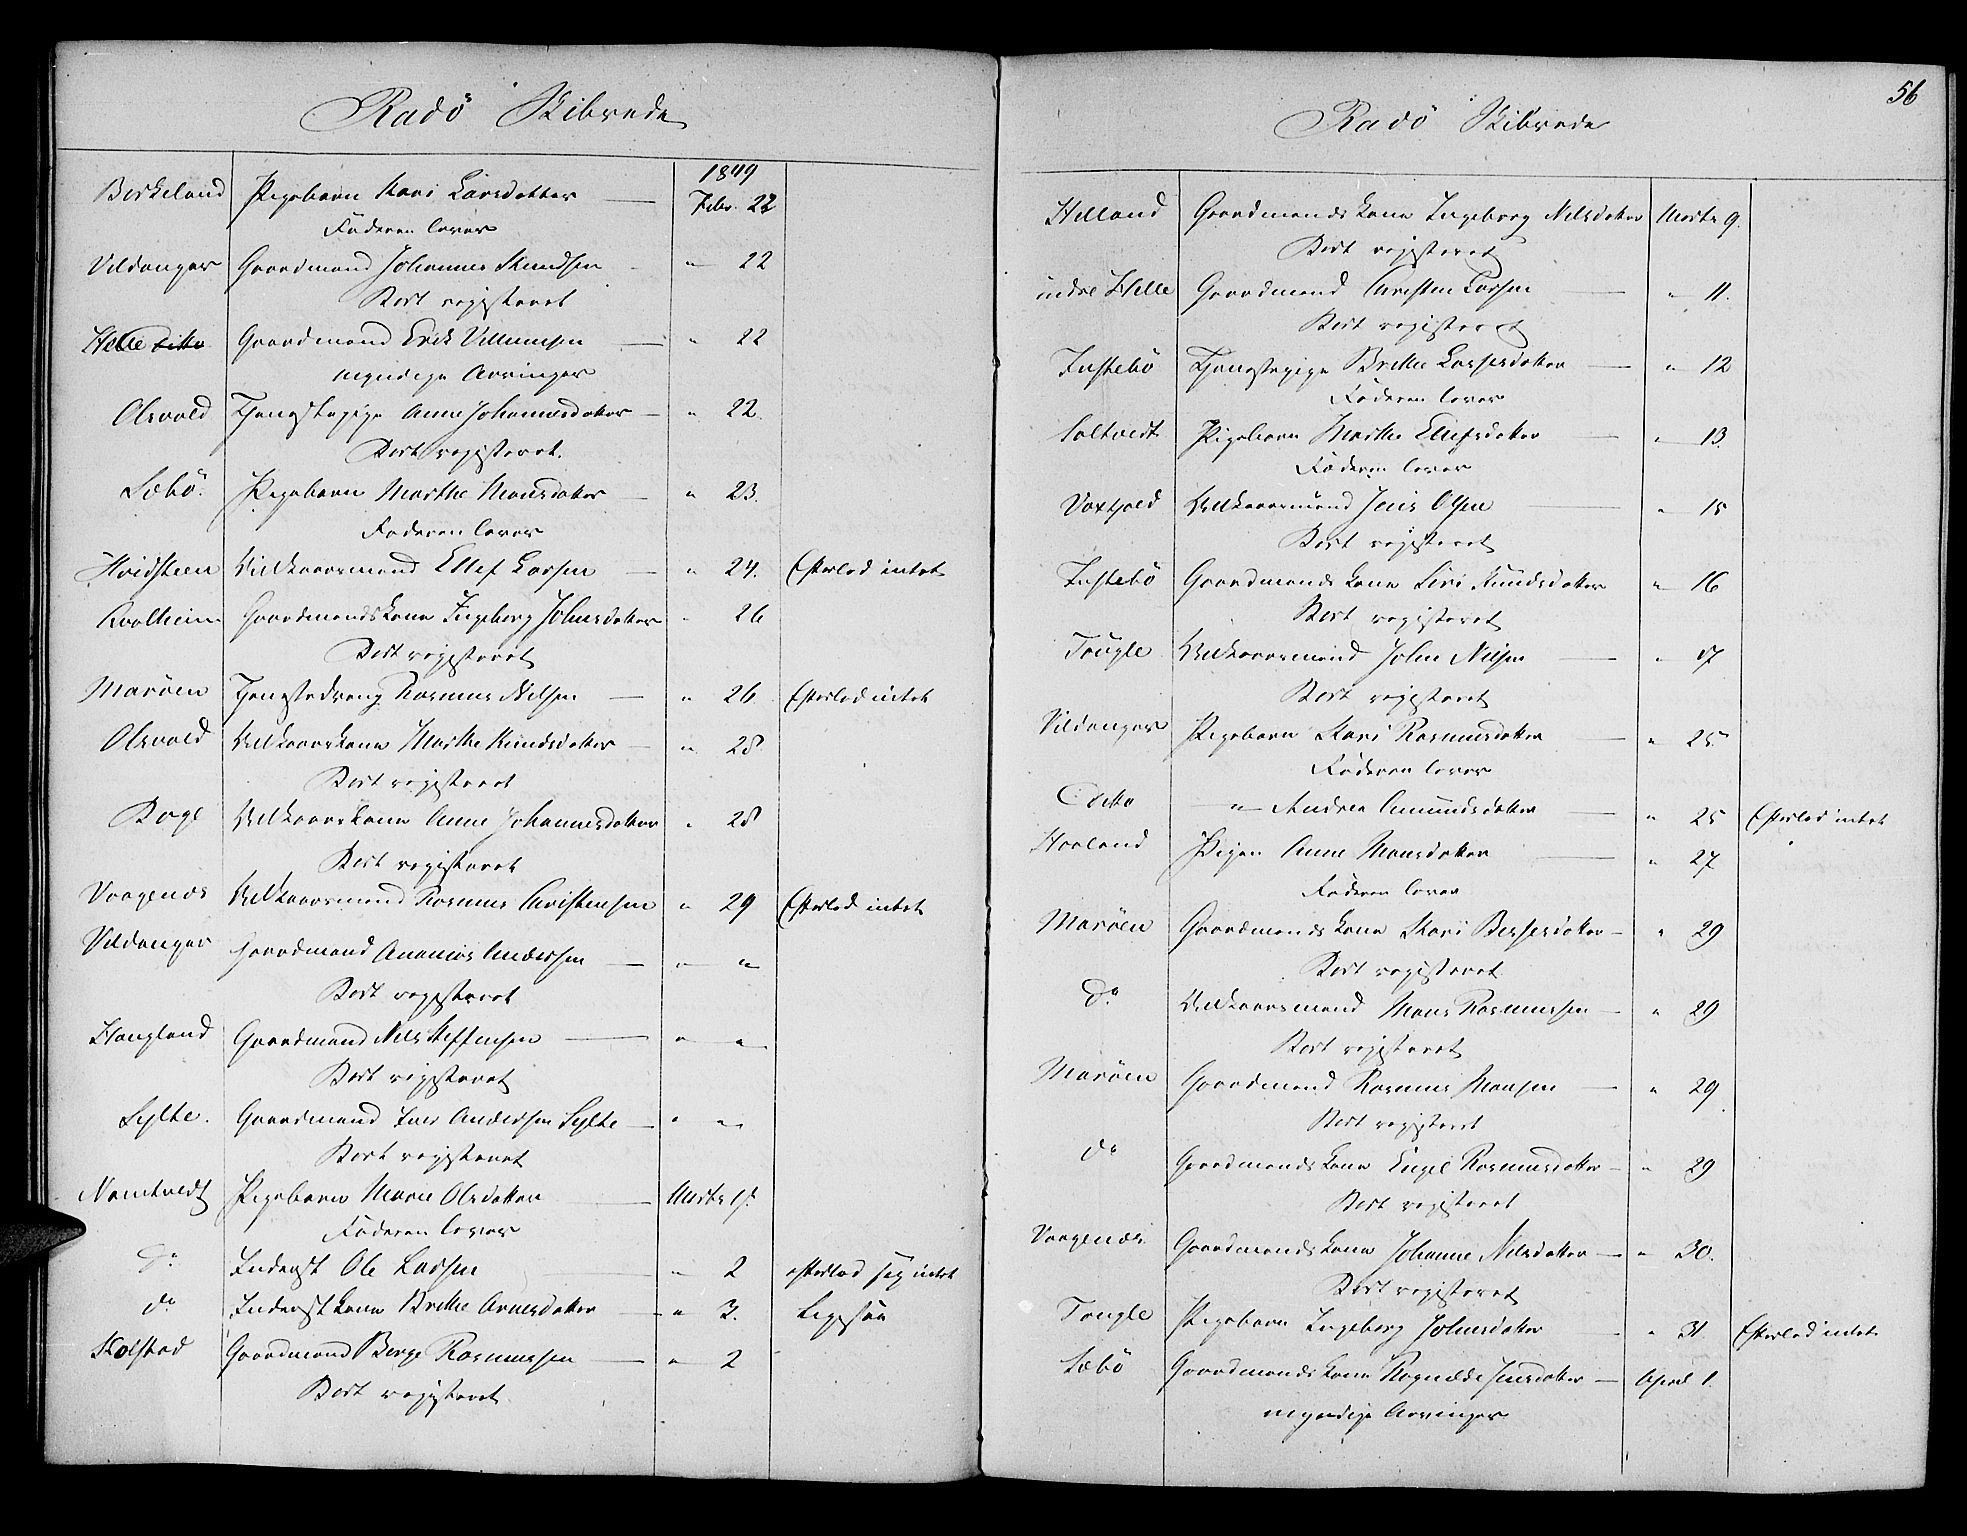 Radö Skibrede
1849
Birkeland Pigebarn Kari Larsdatter — Febr. 22
Faderen lever
Vildanger Gaardmand Johannes Knudsen - " 22
Bort registeret
Helle ditto Gaardmand Erik Villumsen — " 22
myndige Arvinger
Olsvold Tjenestepige Anne Johannesdatter — " 22.
Bort registeret.
Sæbö. Pigebarn Marthe Monsdatter — " 23.
Faderen lever
Hvidsteen Vilkaarsmand Ellef Larsen — " 24. Efterlod intet
Gaardmandskone Ingeborg Johnsdatter " 26
Bort registeret
Maröen Tjenestedreng Rasmus Nilsen — " 26 Efterlod intet
Olsvold Vilkaarskone Marthe Knudsdatter — " 28
Bort registeret
Boge Vilkaarskone Anne Johannesdatter " 28
Bort registeret
Vaagenæs Vilkaarsmand Rasmus Christensen " 29 Efterlod intet
Vildanger Gaardmand Ananias Andersen — " "
Bort registeret
Haugland Gaardmand Nils Steffensen — " "
Bort registeret
Sylte. Gaardmand Lars Andersen Sylte — " "
Bort registeret
Namtvedt Pigebarn Marie Olsdatter — Marts 1.
Faderen lever
do Inderst Ole Larsen — " 2 efterlod seg intet
do Inderst kone Brithe Arnesdatter — " 3. Ligesaa
Kolstad Gaardmand Børge Rasmussen — " 2
Bort registeret
56
Radö Skibrede
Helland Gaardmands kone Ingeborg Nilsdatter Marts 9.
Bort registeret
indre Helle Gaardmand Christen Larsen — " 11.
Bort registeret
Instebö Tjenestepige Brithe Lassesdatter — " 12
Faderen lever
Soltvedt Pigebarn Marthe Ellefsdatter — " 13
Faderen lever
Voxtvold Vilkaarsmand Jens Olsen — " 15
Bort registeret
Instebö Gaardmands kone Siri Knudsdatter " 16
Bort registeret
Tougle Vilkaarsmand John Nilsen — " 17
Bort registeret
Vildanger Pigebarn Kari Rasmusdatter — " 25
Faderen lever
Ditto " Andrea Amundsdatter — " 25 Efterlod intet
Haaland Pigen Anne Monsdatter — " 27
Faderen lever
Maröen Gaardmands kone Kari Bessesdatter — " 29
Bort registeret
do Vilkaarsmand Mons Rasmussen — " 29
Bort registeret
Maröen Gaardmand Rasmus Monsen — " 29
Bort registeret
do Gaardmands kone Engel Rasmusdatter — " 29
Bort registeret
Vaagenæs Gaardmands kone Johanne Nilsdatter — " 30.
Bort registeret
Tougle Pigebarn Ingeborg Johnsdatter - " 31 Efterlod intet
Sæbö Gaardmands kone Ragnilde Jensdatter — April 1.
myndige Arvinger